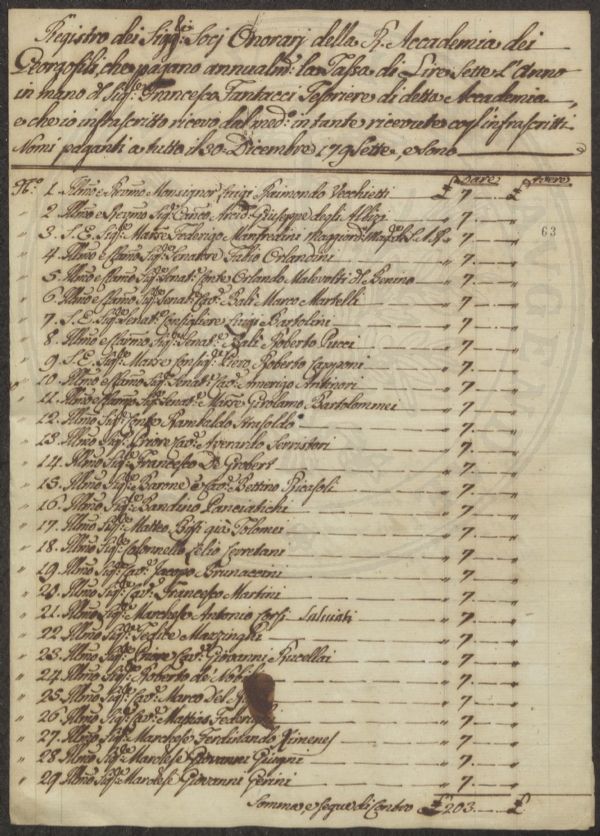 Registro dei Sigg:ri Socj Onorarj della R. Accademia dei
Georgofili, che pagano annualm: la Tassa di Lire Sette L'Anno
in mano d Sig:re Francesco Tantacci Tesoriere di detta Accademia,
e che io infrascritto ricevo dal med:o in tante ricevute cogl'infrascritti
Nomi paganti a tutto il 30. Dicembre 179sette, e sono
Dare Avere
63
N:o 1. Illmo e Rmo Monsignor Luigi Raimondo Vecchietti £ 7 „ £
„ 2. Illmo e Sig:re Giuseppe degli Albizi „ 7 „ „
„ 3. S. E. Sig:re Marse Federigo Manfredini Maggiord: „ 7 „ „
„ 4. Illmo e Sig:re Senatore Fabio Orlandini „ 7 „ „
„ 5. Illmo e Sig:re Senat:e Conte Orlando Malevolti del Benino „ 7 „ „
„ 6. Illmo e Sig:re Senat:e Cav:e Balì Marco Martelli „ 7 „ „
„ 7. S. E. Sig:re Senat:e Consigliere Luigi Bartolini „ 7 „ „
„ 8. Illmo e Sig:re Senat:e Balì Roberto Pucci „ 7 „ „
„ 9. S. E. Sig:re Marse Consig:re Piero Roberto Capponi „ 7 „ „
„ 10. Illmo e Sig:re Senat:e Cav:e Amerigo Antinori „ 7 „ „
„ 11. Illmo e Sig:re Senat:e Marse Girolamo Bartolommei „ 7 „ „
„ 12. Illmo Sig:re Conte Rambaldo „ 7 „ „
„ 13. Illmo Sig:re Priore Cav:e Averardo Serristori „ 7 „ „
„ 14. Illmo Sig:re Francesco De Grobert „ 7 „ „
„ 15. Illmo Sig:re Barone e Cav:e Bettino Ricasoli „ 7 „ „
„ 16. Illmo Sig:re Bandino Panciatichi „ 7 „ „
„ 17. Illmo Sig:re Matteo Biffi già Tolomei „ 7 „ „
„ 18. Illmo Sig:re Colonnello Lelio Cerretani „ 7 „ „
„ 19. Illmo Sig:re Cav:e Jacopo Brunaccini „ 7 „ „
„ 20. Illmo Sig:re Cav:e Francesco Martini „ 7 „ „
„ 21. Illmo Sig:re Marchese Antonio Corsi Salviati „ 7 „ „
„ 22. Illmo Sig:re Felice Marzinghi „ 7 „ „
„ 23. Illmo Sig:re Priore Cav:e Giovanni Rucellai „ 7 „ „
„ 24. Illmo Sig:re Roberto de' Nobili „ 7 „ „
„ 25. Illmo Sig:re Cav:e Marco Del „ 7 „ „
„ 26. Illmo Sig:re Cav:e Mattias Federighi „ 7 „ „
„ 27. Illmo Sig:re Marchese Ferdinando Ximenes „ 7 „ „
„ 28. Illmo Sig:re Marchese Giovanni Giugni „ 7 „ „
„ 29. Illmo Sig:re Marchese Giovanni Gerini „ 7 „ „
Somma, e segue di Contro £ 203. £